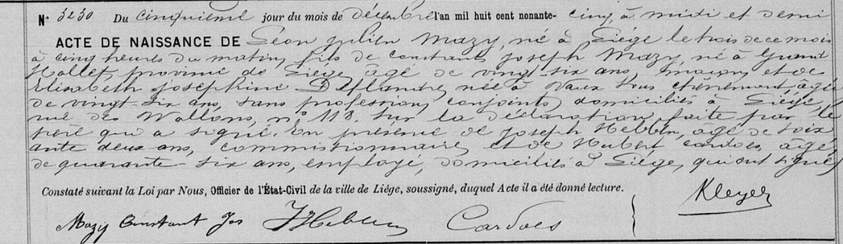 N° 3230 Du cinquième jour du mois de décembre l'an mil huit cent nonante-cinq, à midi et demi
ACTE DE NAISSANCE DE Léon Julien Mazy, né à Liége le trois de ce mois
à cinq heures du matin, fils de Constant Joseph Mazy, né à Grand
Hallet, province de Liége, âgé de vingt six ans, maçon, et de
Elisabeth Joséphine Deflandre, née à Vaux sous Chèvremont, âgée
de vingt-six ans, sans profession, conjoints, domiciliés à Liége,
rue des Wallons, n° 118. Sur la déclaration faite par le
père qui a signé. En présence de Joseph Hebben, âgé de soix
ante deux ans, commissionnaire et de Hubert Cardols, âgé
de quarante-six ans, employé, domiciliés à Liége, qui ont signé
Constaté suivant la Loi par Nous, Officier de l'État-Civil de la ville de Liége, soussigné, duquel Acte il a été donné lecture.
Kleyer
Mazy Constant Jos JHebben Cardols